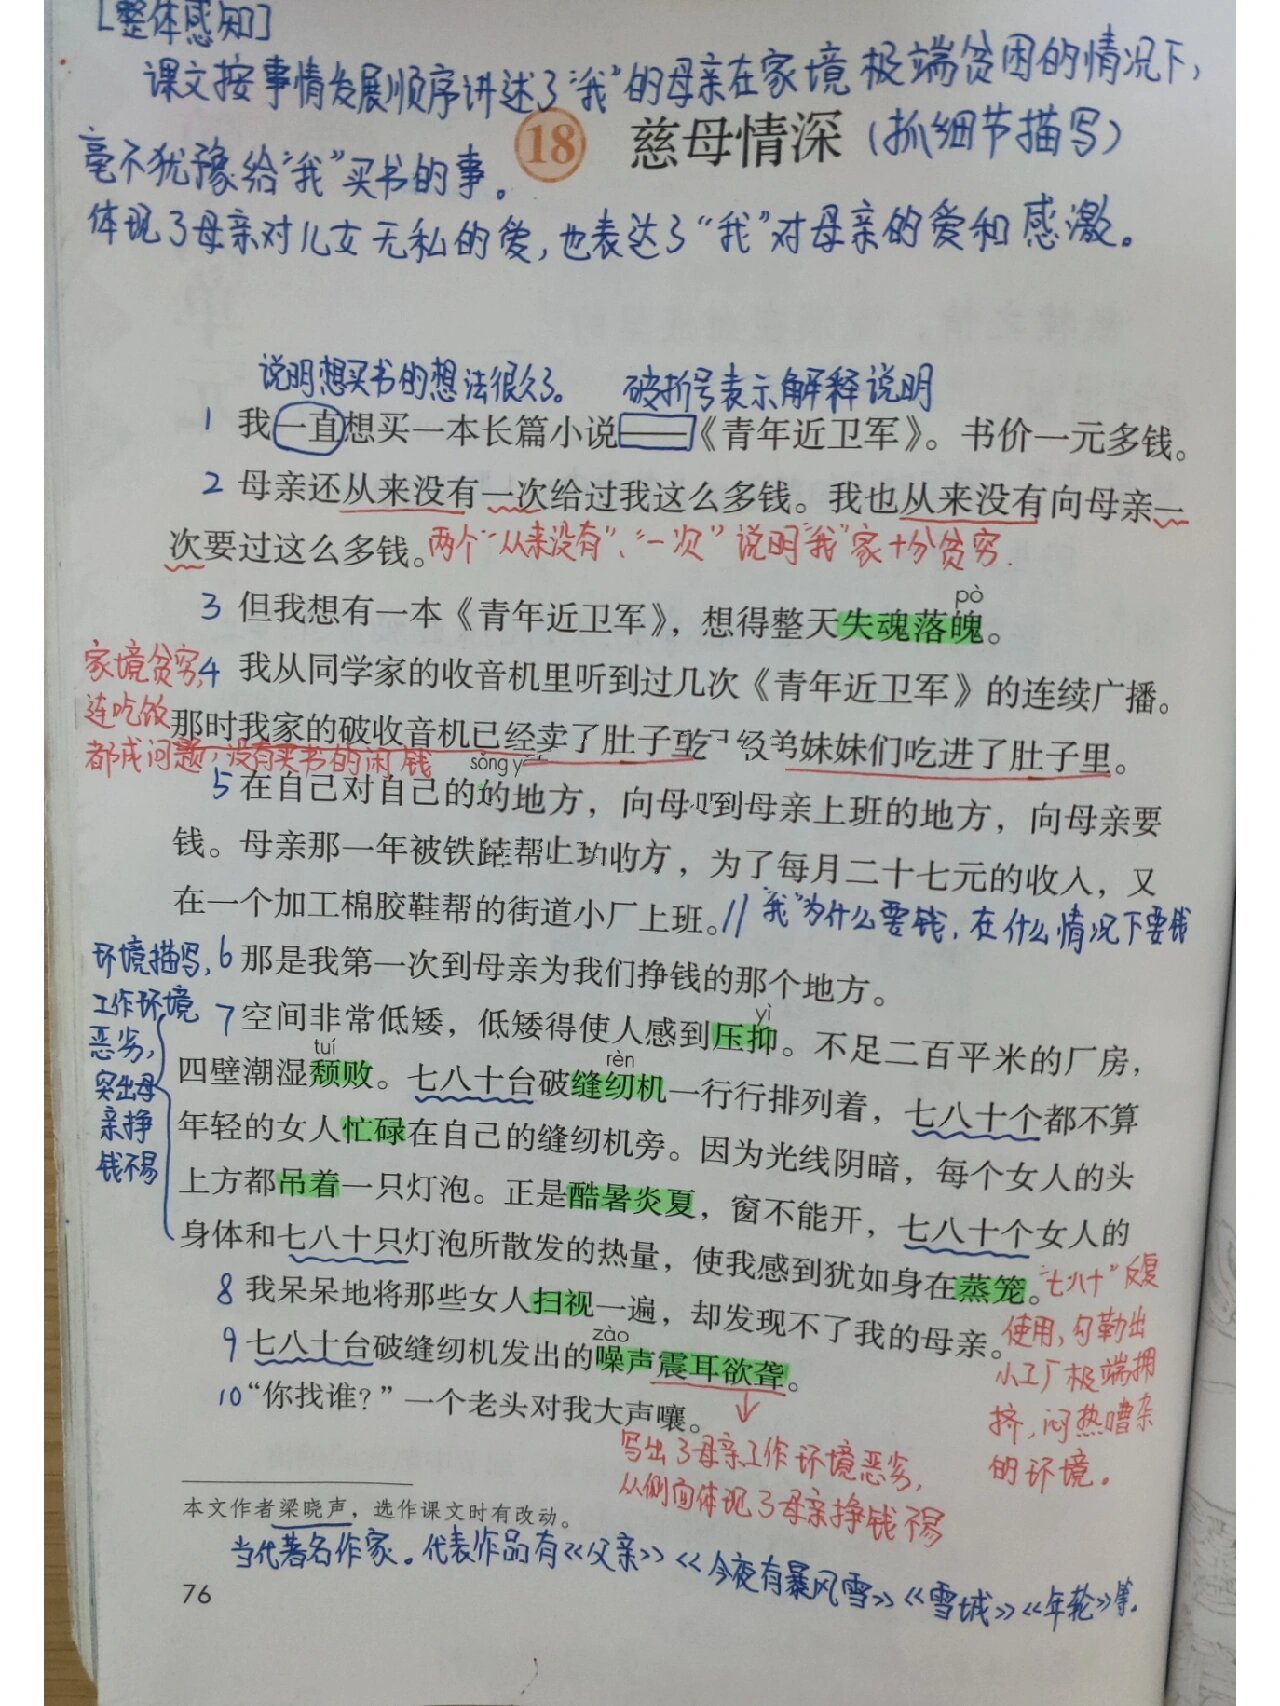 [整体感知]
课文按事情发展顺序讲述了“我”的母亲在家境极端贫困的情况下,
毫不犹豫给“我”买书的事。
18 慈母情深(抓细节描写)
体现了母亲对儿女无私的爱,也表达了“我”对母亲的爱和感激。
说明想买书的想法很久了。 破折号表示解释说明
1 我一直想买一本长篇小说——《青年近卫军》。书价一元多钱。
2 母亲还从来没有一次给过我这么多钱。我也从来没有向母亲一
次要过这么多钱。两个“从来没有”、“一次”说明“我”家十分贫穷.
pò
3 但我想有一本《青年近卫军》，想得整天失魂落魄。
家境贫穷,
连吃饭
都成问题,没有买书的闲钱
4 我从同学家的收音机里听到过几次《青年近卫军》的连续广播。
那时我家的破收音机已经卖了肚子 妹妹们吃进了肚子里。
sǒng y
5 在自己对自己的 的地方，向母 到母亲上班的地方，向母亲要
钱。母亲那一年被铁 帮 ，为了每月二十七元的收入，又
在一个加工棉胶鞋帮的街道小厂上班。// “我”为什么要钱,在什么情况下要钱
6 那是我第一次到母亲为我们挣钱的那个地方。
环境描写,
工作环境
恶劣,
突出母
亲挣
钱不易
yì
7 空间非常低矮，低矮得使人感到压抑。不足二百平米的厂房，
tuí rèn
四壁潮湿颓败。七八十台破缝纫机一行行排列着，七八十个都不算
年轻的女人忙碌在自己的缝纫机旁。因为光线阴暗，每个女人的头
上方都吊着一只灯泡。正是酷暑炎夏，窗不能开，七八十个女人的
身体和七八十只灯泡所散发的热量，使我感到犹如身在蒸笼。
“七八十”反复
使用,勾勒出
小工厂极端拥
挤,闷热嘈杂
的环境。
8 我呆呆地将那些女人扫视一遍，却发现不了我的母亲。
zào
9 七八十台破缝纫机发出的噪声震耳欲聋。
10 “你找谁？”一个老头对我大声嚷。
写出了母亲工作环境恶劣,
从侧面体现了母亲挣钱不易
本文作者梁晓声，选作课文时有改动。
当代著名作家。代表作品有《父亲》《今夜有暴风雪》《雪城》《年轮》等.
76